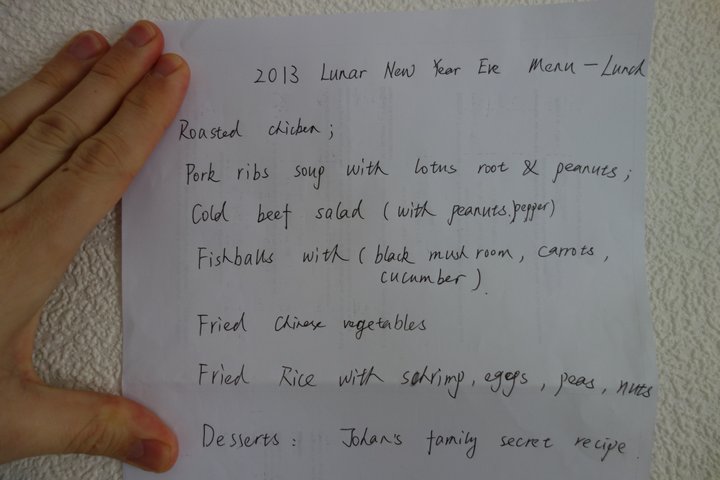 2013 Lunar New Year Eve Menu - Lunch
Roasted chicken;
Pork ribs soup with lotus root & peanuts;
Cold beef salad (with peanuts.pepper)
Fishballs with (black mushroom, carrots,
cucumber).
Fried Chinese vegetables
Fried Rice with schrimp, eggs, peas, nuts
Desserts: Johan's family secret recipe